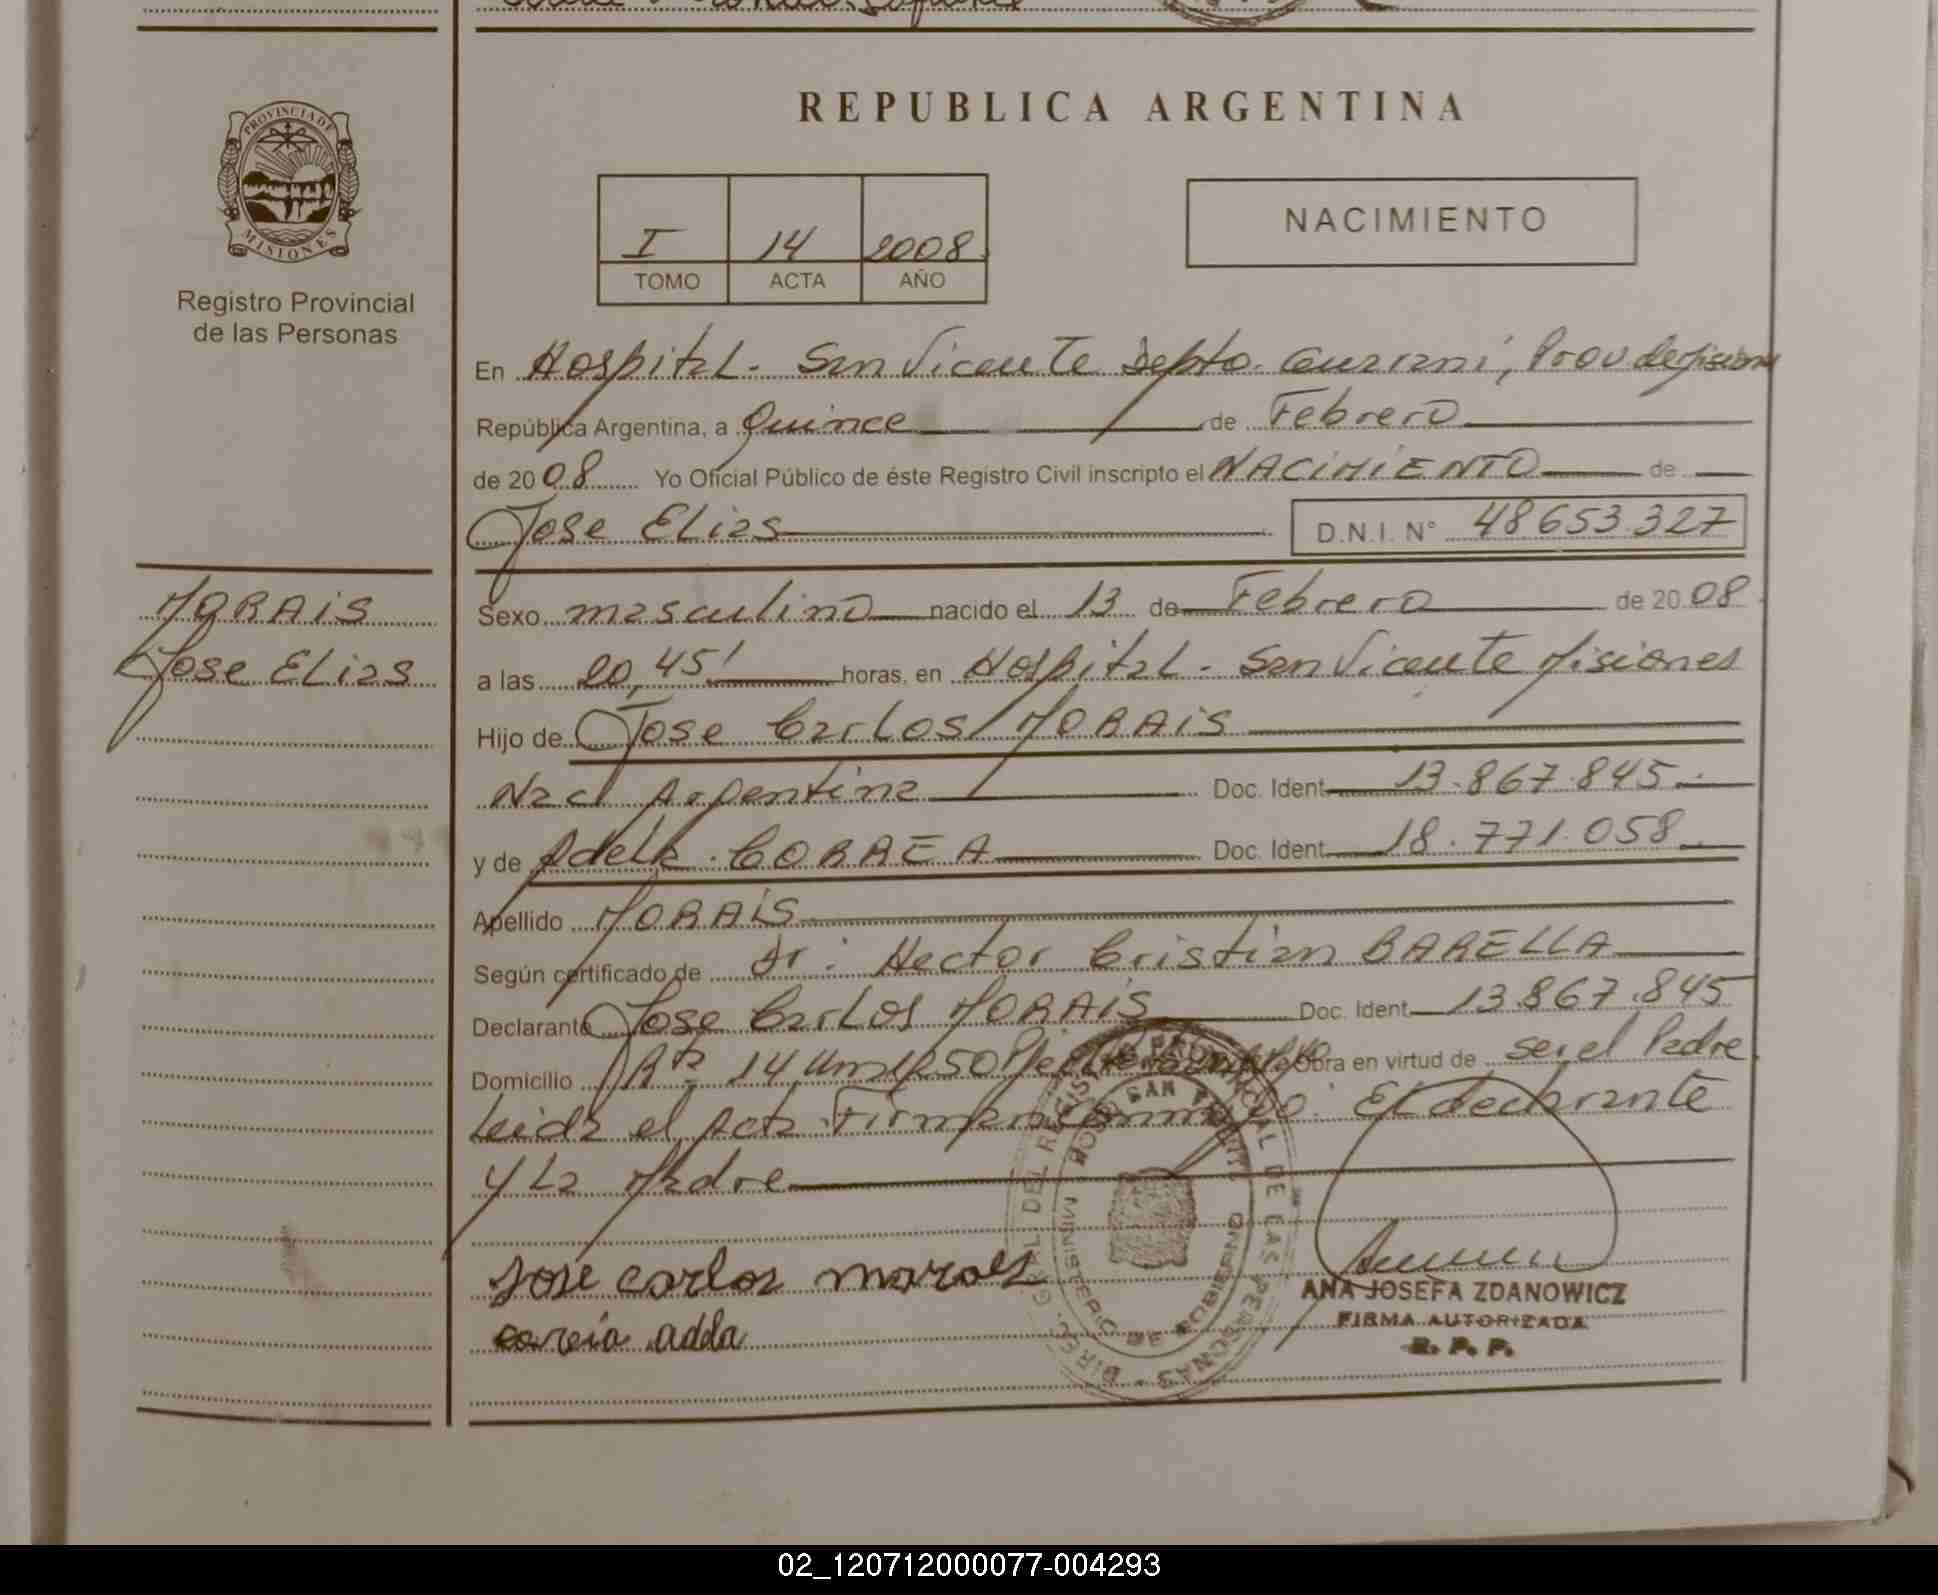 REPUBLICA ARGENTINA
PROVINCIA DE MISIONES
I 14 2008
TOMO ACTA AÑO
NACIMIENTO
Registro Provincial
de las Personas
En Hospital - San Vicente Depto. Guarani, Prov de Misiones
República Argentina, a Quince de Febrero
de 2008 Yo Oficial Público de éste Registro Civil inscripto el NACIMIENTO de
Jose Elias D.N.I. N° 48653.327
MORAIS
Jose Elias
Sexo masculino nacido el 13 de Febrero de 2008
a las 20,45' horas, en Hospital - San Vicente Misiones
Hijo de Jose Carlos MORAIS
Nacd Argentina Doc. Ident 13.867.845.-
y de Adela CORREA Doc. Ident 18.771.058
Apellido MORAIS
Según certificado de Dr: Hector Cristian BARELLA
Declarante Jose Carlos MORAIS Doc. Ident 13.867.845
Domicilio Rta 14 Km 1250 Obra en virtud de ser el Padre
Leida el Acta Firman conmigo: El declarante
y La Madre
Jose carlos moraes
correia adela
DIREC. GRAL DEL REGISTRO PROVINCIAL DE LAS PERSONAS
MINISTERIO DE GOBIERNO
SAN VICENTE
ANA JOSEFA ZDANOWICZ
FIRMA AUTORIZADA
R. P. P.
02_120712000077-004293